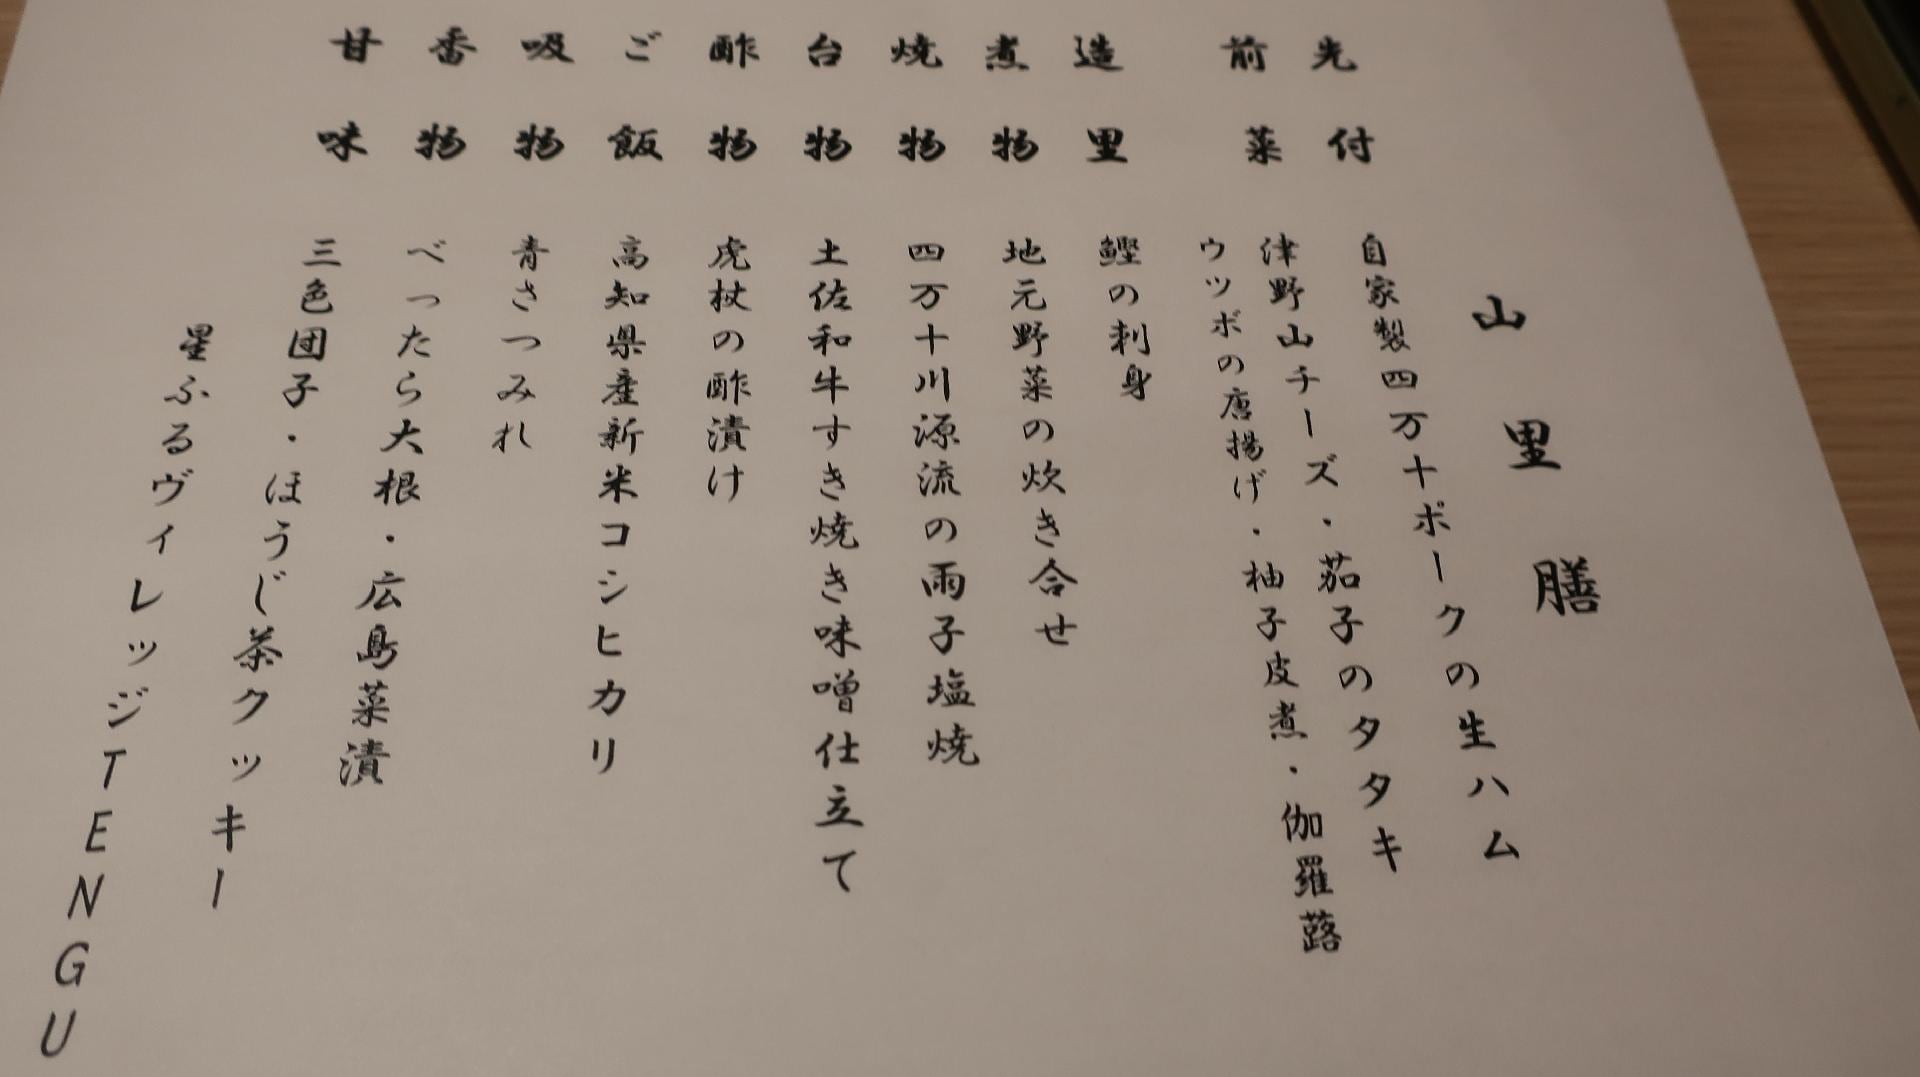 山里膳
先付 自家製四万十ポークの生ハム
前菜 津野山チーズ・茄子のタタキ
ウツボの唐揚げ・柚子皮煮・伽羅蕗
造里 鰹の刺身
煮物 地元野菜の炊き合せ
焼物 四万十川源流の雨子塩焼
台物 土佐和牛すき焼き味噌仕立て
酢物 虎杖の酢漬け
ご飯 高知県産新米コシヒカリ
吸物 青さつみれ
香物 べったら大根・広島菜漬
甘味 三色団子・ほうじ茶クッキー
星ふるヴィレッジTENGU